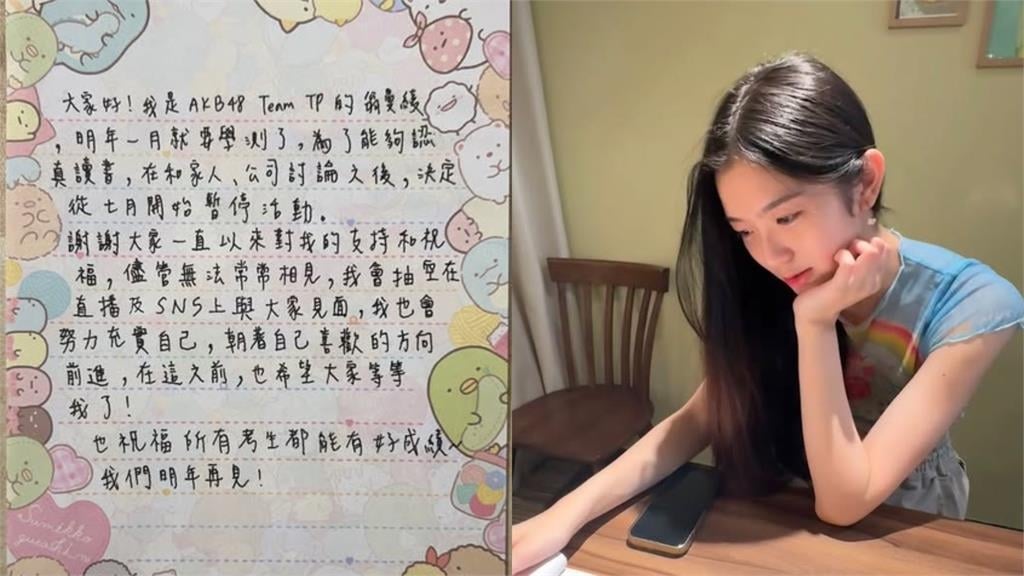 大家好！我是 AKB48 Team TP 的 翁曼綾
，明年一月就要學測了，為了能夠認
真讀書，在和家人、公司討論之後，決定
從七月開始暫停活動。
謝謝大家一直以來對我的支持和祝
福，儘管無法常常相見，我會抽空在
直播及SNS上與大家見面，我也會
努力充實自己，朝著自己喜歡的方向
前進，在這之前，也希望大家等等
我了！
也祝福所有考生都能有好成績，
我們明年再見！
Sumikko
gurashi